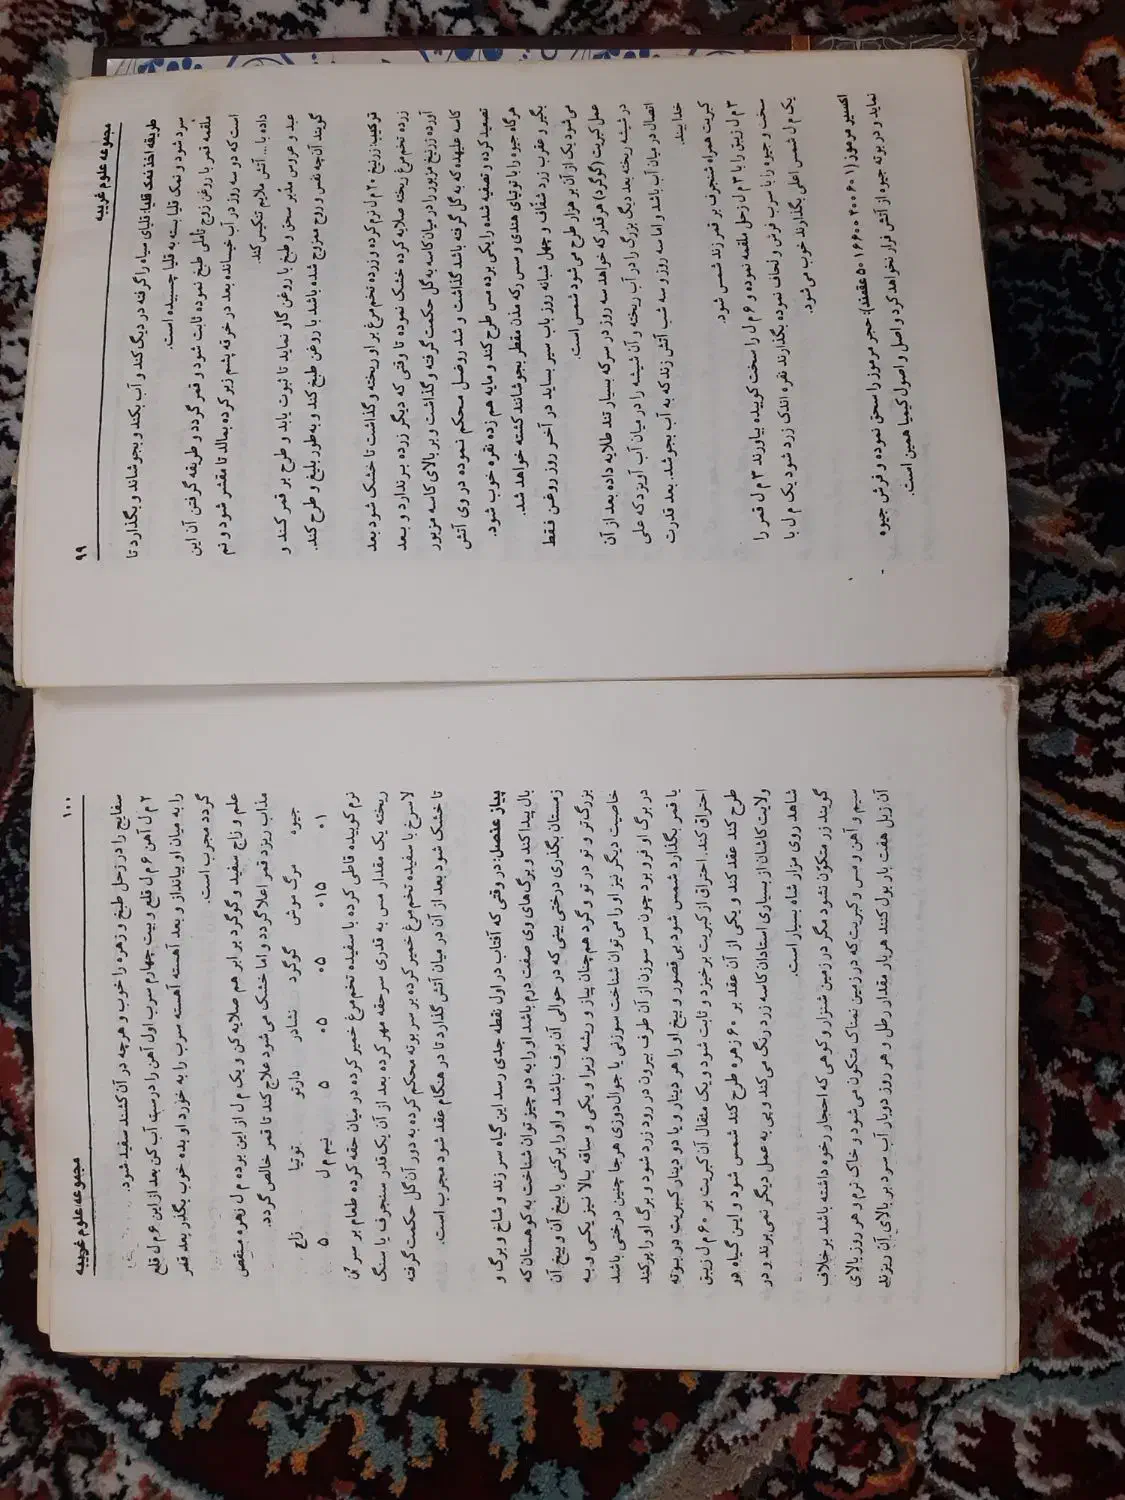 مجموعه علوم غریبه
۹۹
طریقه اخذ نمک قلیا: قلیای سیاه را گرفته در دیگ کند و آب بکند و بجوشاند و بگذارد تا
سرد شود و نمک قلیا بسته به قلیا چسبیده است.
ملقمه قمر با روغن زوج تأملی طبخ نموده ثابت شود و قمر گردد و طریقه گرفتن آن این
است که دو سه روز در آب خیسانده بعد در خرقه پشم زبر کرده بمالد تا مقشر شود و نم
داده با... آتش ملایم تنکیس کند.
عبد و عروس مدبر سحق و طبخ با روغن گاو نماید تا ثبوت یابد و طرح بر قمر کند و
گویند آن چه نفس و روح ممزوج شده باشد با روغن طبخ کند و به طور بلیغ و طرح کند.
ترکیب: زرنیخ ۲۰ م ل نرم کرده و زرده تخم مرغ بر او ریخته و گذاشت تا خشک شود بعد
زرده تخم مرغ ریخته صلایه کرده خشک نموده تا وقتی که دیگر زرده برندارد و بعد
آورده زرنیخ مزبور را در میان کاسه به گل حکمت گرفته و گذاشت و بر بالای کاسه مزبور
کاسه علیهده که به گل گرفته باشد گذاشت و شد روصل محکم نموده در روی آتش
تصعید کرده و تصفیه شده را یکی برده مس طرح کند و مابه هم زده نقره خوب شود.
هرگاه جیوه را با توتیای هندی و سس رکه مذن مقطر بجوشانند کشته خواهد شد.
بگیر و عقرب زرد شفاف و چهل شبانه روز باب سیر بساید در آخر روز روغن فقط
می‌شود یک از آن بر هزار طرح می‌شود شمس است.
عمل کبریت (گوگرد) هر قدر که خواهد سه روز در سرکه بسیار تند طلایه داده بعد از آن
در شیشه ریخته بعد دیگ بزرگ را در آب ریخته و آن شیشه را در میان آب آویزد که علی
اتصال در میان آب باشد و اما سه روز و سه شب آتش زند که به آب بجوشد. بعد قدرت
خدا بیند.
کبریت همراه شنجرف بر قمر زند شمس شود.
۳ م ل زیبق را با ۳ م ل زحل ملقمه نموده و ۶ م ل را سخت کوبیده بیاورند ۳ م ل قمر را
سخت و جیوه را با سرب فرش و لحاف نموده بگذارند نقره اندک زرد شود یک م ل با
یک م ل شمس اعلی بگذارند خوب می‌شود.
نماید و در بوته جیوه از آتش فرار نخواهد کرد و اصل و اصول کیمیا همین است.
۱۰۰
مجموعه علوم غریبه
سفایح را در زحل طبخ و زهره را خوب و هرچه در آن کشند سفید شود.
۲ م ل آهن ۶ م ل قلع و بیت چهارم سرب اول آهن را درست آب کن بعد از این ۶ م ل قلع
را به میان او بیانداز و بعد آهسته آهسته سرب را به خورد او بده خوب بگذر بعد قمر
گردد مجرب است.
علم و زاج سفید و گوگرد برابر هم صلایه کن و یک م ل از این برده م ل زهره منتقص
مذاب ریزد قمر اعلا گردد و اما خشک می‌شود علاج کند تا قمر خالص گردد.
جیوه مرگ موش گوگرد نشادر دارتو توتیا زاج
۰۱ ۰۱۵ ۰۵ ۰۵ ۵ نیم م ل ۵
نرم کوبیده قاطی کرده با سفیده تخم مرغ خمیر کرده در میان حقه کرده طعام بر سر آن
ریخته یک مقدار مس به قدری سر حقه مهر کرده بعد از آن یک قدر سنجرف یا سنگ
لاسرخ با سفیده تخم مرغ خمیر کرده بر سر بوته محکم کرده به دور آن گل حکمت گرفته
تا خشک شود بعد از آن در میان آتش گذارد تا در هنگام عقد شود مجرب است.
پیاز عنصل: در وقتی که آفتاب در اول نقطه جدی رسد این گیاه سر زند و شاخ و برگ و
بال پیدا کند و برگ‌های وی صفت درم باشد او را به دو چیز توان شناخت به کوهستان که
زمستان بگذری درختی بینی که در حوالی آن برف نباشد و او را برکنی با بیخ آن و بیخ آن
بزرگ‌تر و تو در تو و گرد هم‌چنان پیاز و ریشه زبرا و یکی و ساقه بالا نیز یکی و به
خاصیت دیگر نیز او را می‌توان شناخت سوزنی یا جوال‌دوزی هرجا چنین درختی باشد
در برگ او فرو برد چون سر سوزن از آن طرف بیرون در رود زرد شود و برگ او را برکند
با قمر بگذارد شمس شود بی‌قصور و بیخ او را هر دینار و یا دو دینار کبریت در بوته
احتراق کند احتراق از کبریت برخیزد و ثابت شود و یک مثقال آن کبریت بر ۶۰ م ل زیبق
طرح کند عقد کند و یکی از آن عقد بر ۶۰ زهره طرح کند شمس شود و این گیاه در
ولایت کاشان از بسیاری استادان کاسه زرد رنگ می‌کند و پی به عمل دیگر نمی‌برند و در
شاهد روی مزار شاه بسیار است.
گویند زر متکون نشود مگر در زمین شنزار و کوهی که احجار رخوه داشته باشد برخلاف
سیم و آهن و مس و کبریت که در زمین نمناک متکون می‌شود و خاک نرم و هر روز بالای
آن زبل هفت بار بول کنند هر بار مقدار رطل و هر روز دوبار آب سرد بر بالای آن ریزند